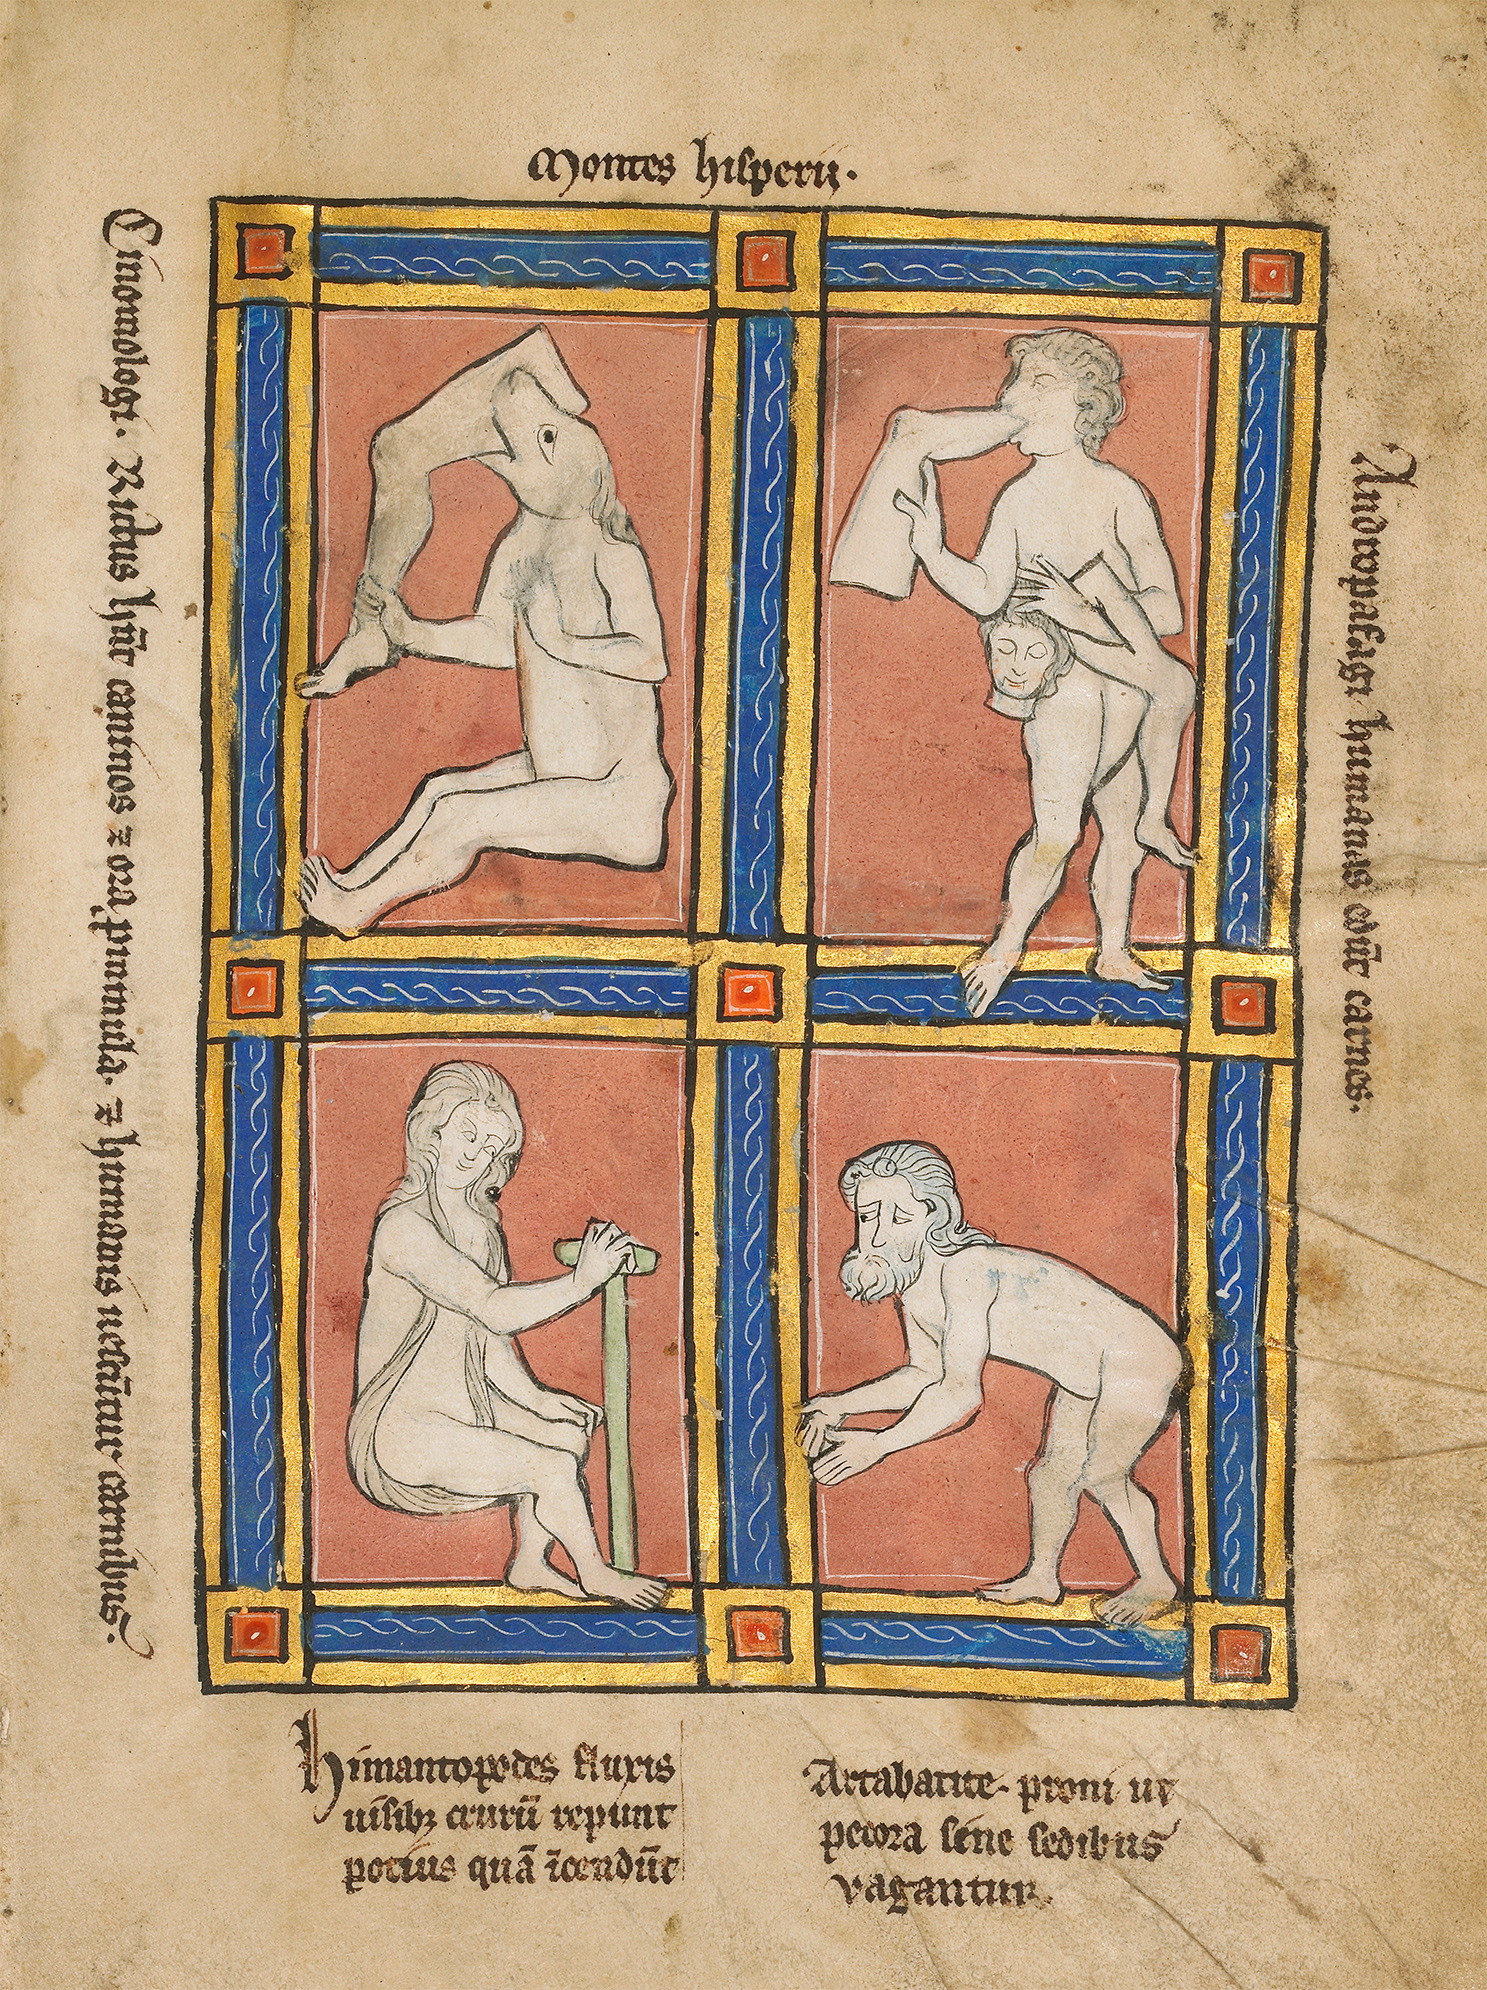 Montes hisperii.
Cinomolgi. Rictus hn̄t caninos ⁊ ora prominula. ⁊ humanis uescūtur carnibus.
Andropafagi humanas edūt carnes.
Himantopodes fluxis
uisibꝫ crurū repunt
potius quā īcendūt
Artabatite. proni ut
pecora sine sedibus
vagantur